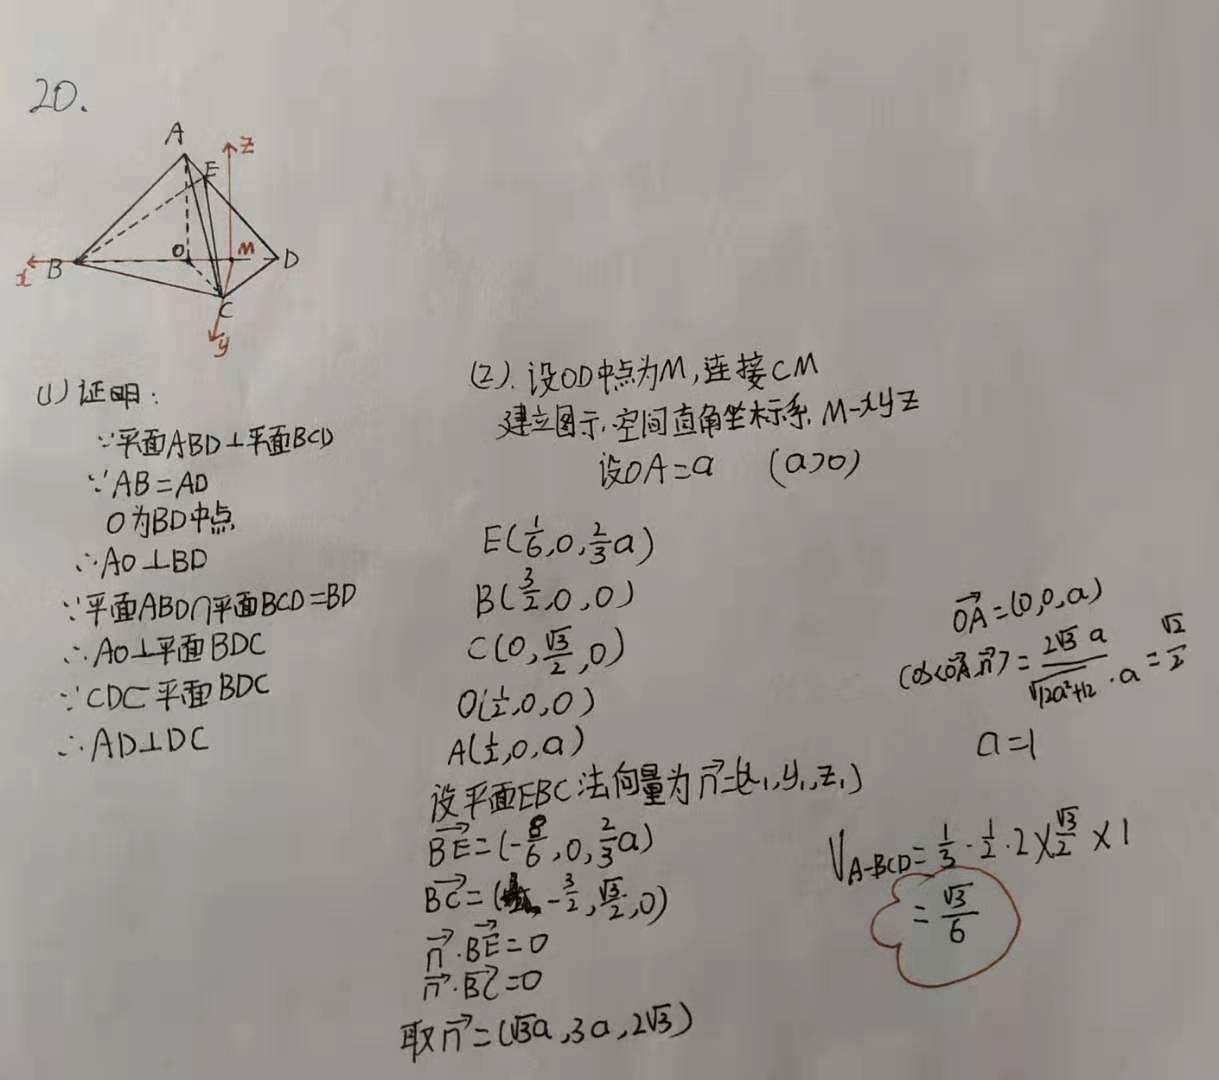 20.
A
z
E
O
M
x
B
D
C
y
(1) 证明:
∵平面ABD⊥平面BCD
∵AB=AD
O为BD中点
∴AO⊥BD
∵平面ABD∩平面BCD=BD
∴AO⊥平面BDC
∵CD⊂平面BDC
∴AD⊥DC
(2). 设OD中点为M,连接CM
建立图示,空间直角坐标系 M-xyz
设OA=a (a>0)
E(1/6,0,2/3a)
B(3/2,0,0)
C(0,√3/2,0)
O(1/2,0,0)
A(1/2,0,a)
设平面EBC法向量为n⃗=(x₁,y₁,z₁)
BE⃗=(-8/6,0,2/3a)
BC⃗=(-3/2,√3/2,0)
n⃗·BE⃗=0
n⃗·BC⃗=0
取n⃗=(√3a,3a,2√3)
OA⃗=(0,0,a)
cos<OA⃗,n⃗>=2√3a/√12a²+12·a=√2/2
a=1
V_A-BCD=1/3·1/2·2×√3/2×1
=√3/6